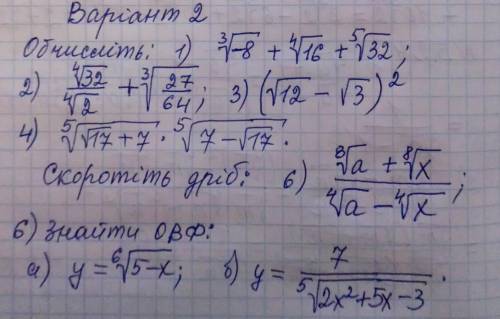 Варіант 2
Обчисліть: 1) ∛-8 + ∜16 + ⁵√32;
2) ∜32/∜2 + ∛(27/64); 3) (√12 - √3)²
4) ⁵√(√17+7) · ⁵√(7-√17).
Скоротіть дріб: 6) (⁸√a + ⁸√x)/(∜a - ∜x);
6) Знайти ОВФ:
а) y = ⁶√(5-x); б) y = 7/⁵√(2x²+5x-3).